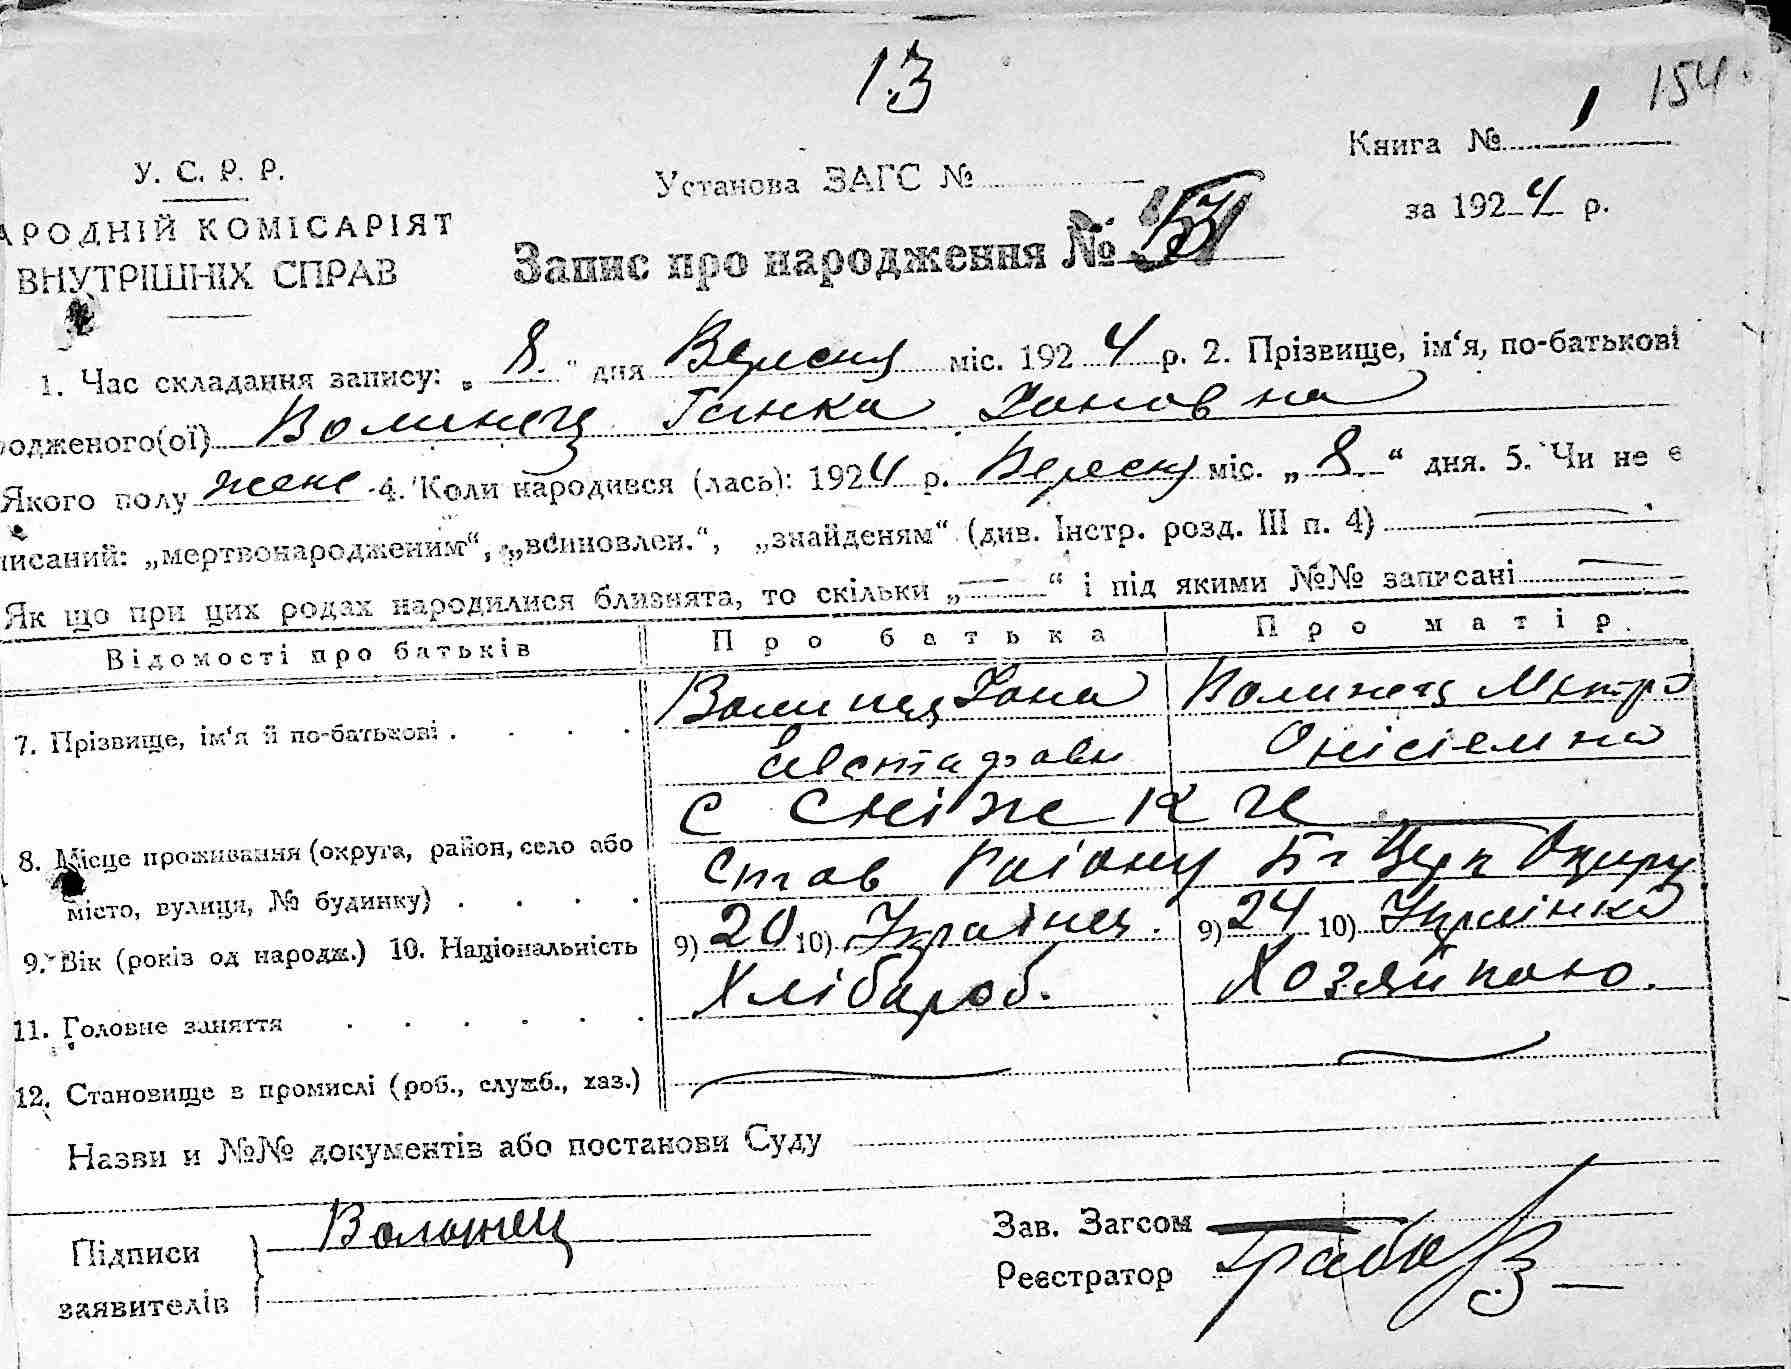 13
154
У. С. Р. Р.
АРОДНІЙ КОМІСАРІЯТ
ВНУТРІШНІХ СПРАВ
Установа ЗАГС №
Книга № 1
за 1924 р.
Запис про народження №
1. Час складання запису: „8." дня Вересня міс. 1924 р. 2. Прізвище, ім'я, по-батькові
родженого(ої) Волинец Ганка Хоновна
Якого полу жене 4. Коли народився (лась): 1924 р. Вересня міс. „8" дня. 5. Чи не є
писаний: „мертвонародженим", „всиновлен.", „знайденям" (див. Інстр. розд. III п. 4)
Як що при цих родах народилися близнята, то скільки „—" і під якими №№ записані —
Відомості про батьків Про батька Про матір.
7. Прізвище, ім'я й по-батькові . . . . Волинец Хона Волинец Мотрэ
Онісіємна
С Сніжки
8. Місце проживання (округа, район, село або
місто, вулиця, № будинку) . . . . Став Раіону Бг Церк Округу
9. Вік (років од народж.) 10. Національність 9) 20 10) Українец. 9) 24 10) Українка
11. Головне заняття . . . . . . Хлібароб. Хозяйкою.
12. Становище в промислі (роб., служб., хаз.) — —
Назви и №№ документів або постанови Суду
Підписи
заявителів
Волинец
Зав. Загсом
Реєстратор